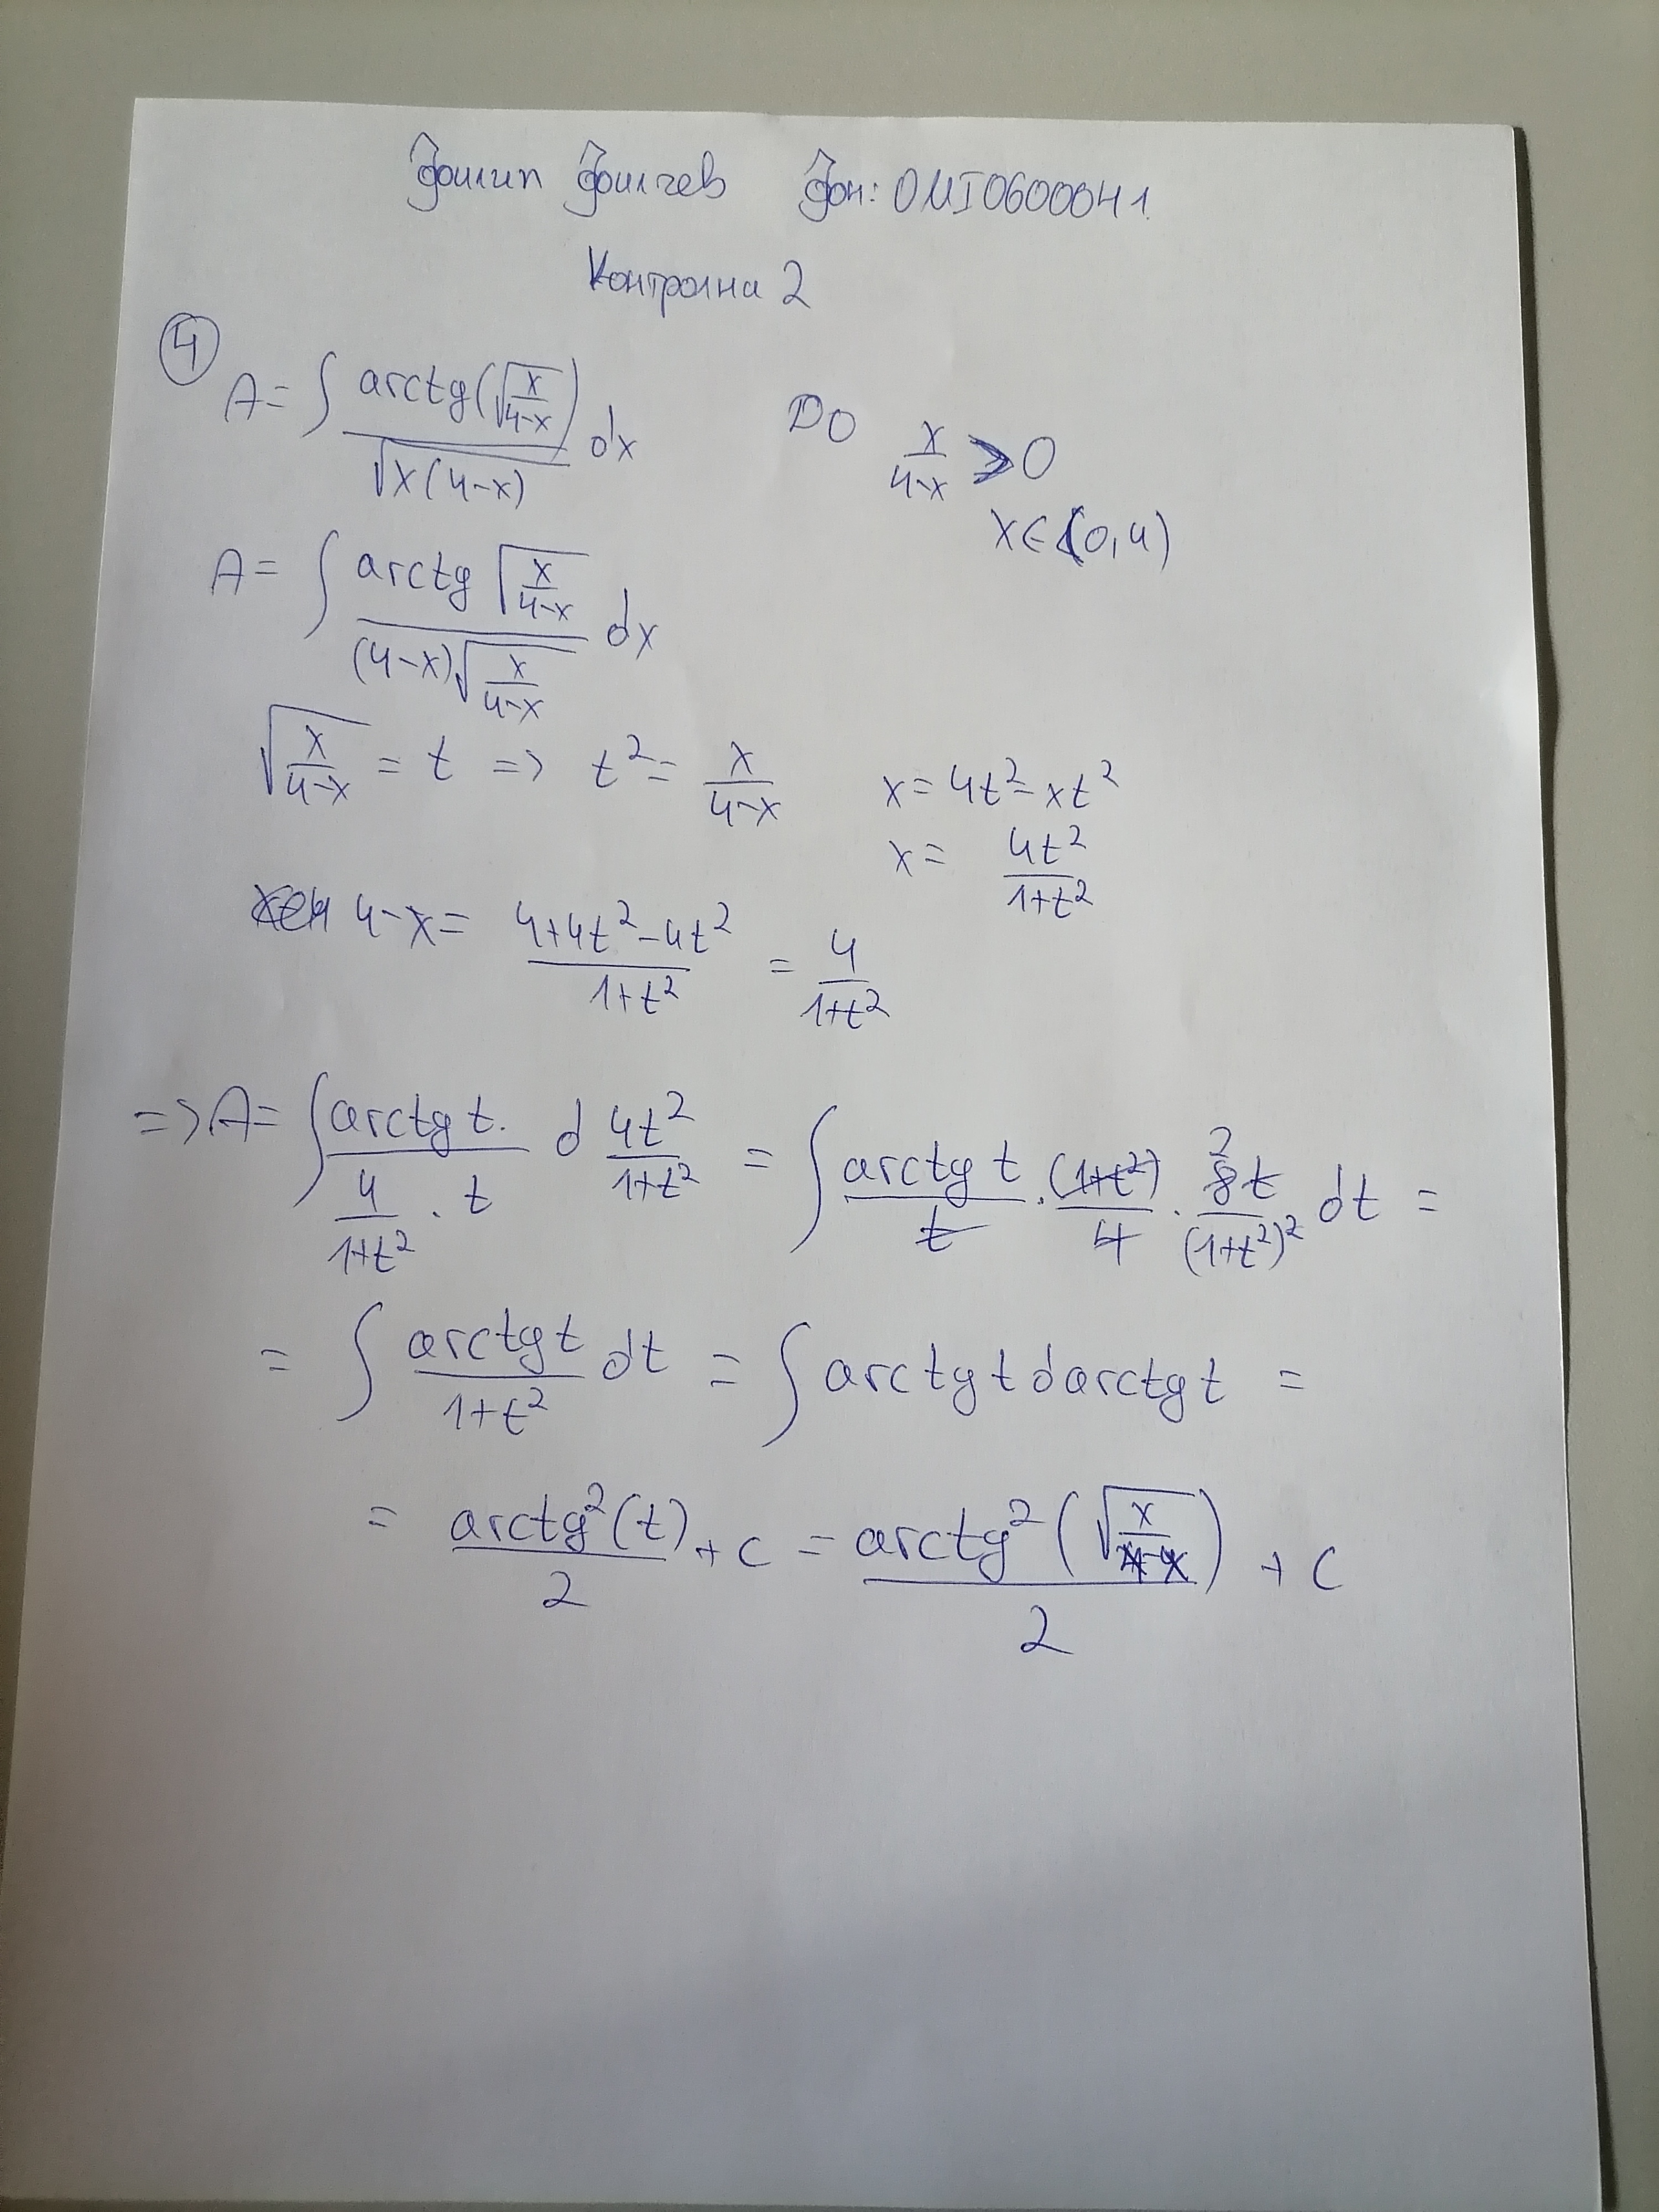 Филип Филчев Фн: 0MI0600041
Контролна 2
④
A = ∫ arctg(√(x/(4-x))) / √(x(4-x)) dx ДО x/(4-x) ⩾ 0
x ∈ (0,4)
A = ∫ arctg √(x/(4-x)) / ((4-x)√(x/(4-x))) dx
√(x/(4-x)) = t => t² = x/(4-x) x = 4t² - xt²
x = 4t²/(1+t²)
4-x = (4+4t²-4t²)/(1+t²) = 4/(1+t²)
=> A = ∫ arctg t. / (4/(1+t²) . t) d 4t²/(1+t²) = ∫ arctg t / t . (1+t²)/4 . 8t 2/(1+t²)² dt =
= ∫ arctg t/(1+t²) dt = ∫ arctg t d arctg t =
= arctg²(t)/2 + c = arctg²(√(x/(4-x)))/2 + C